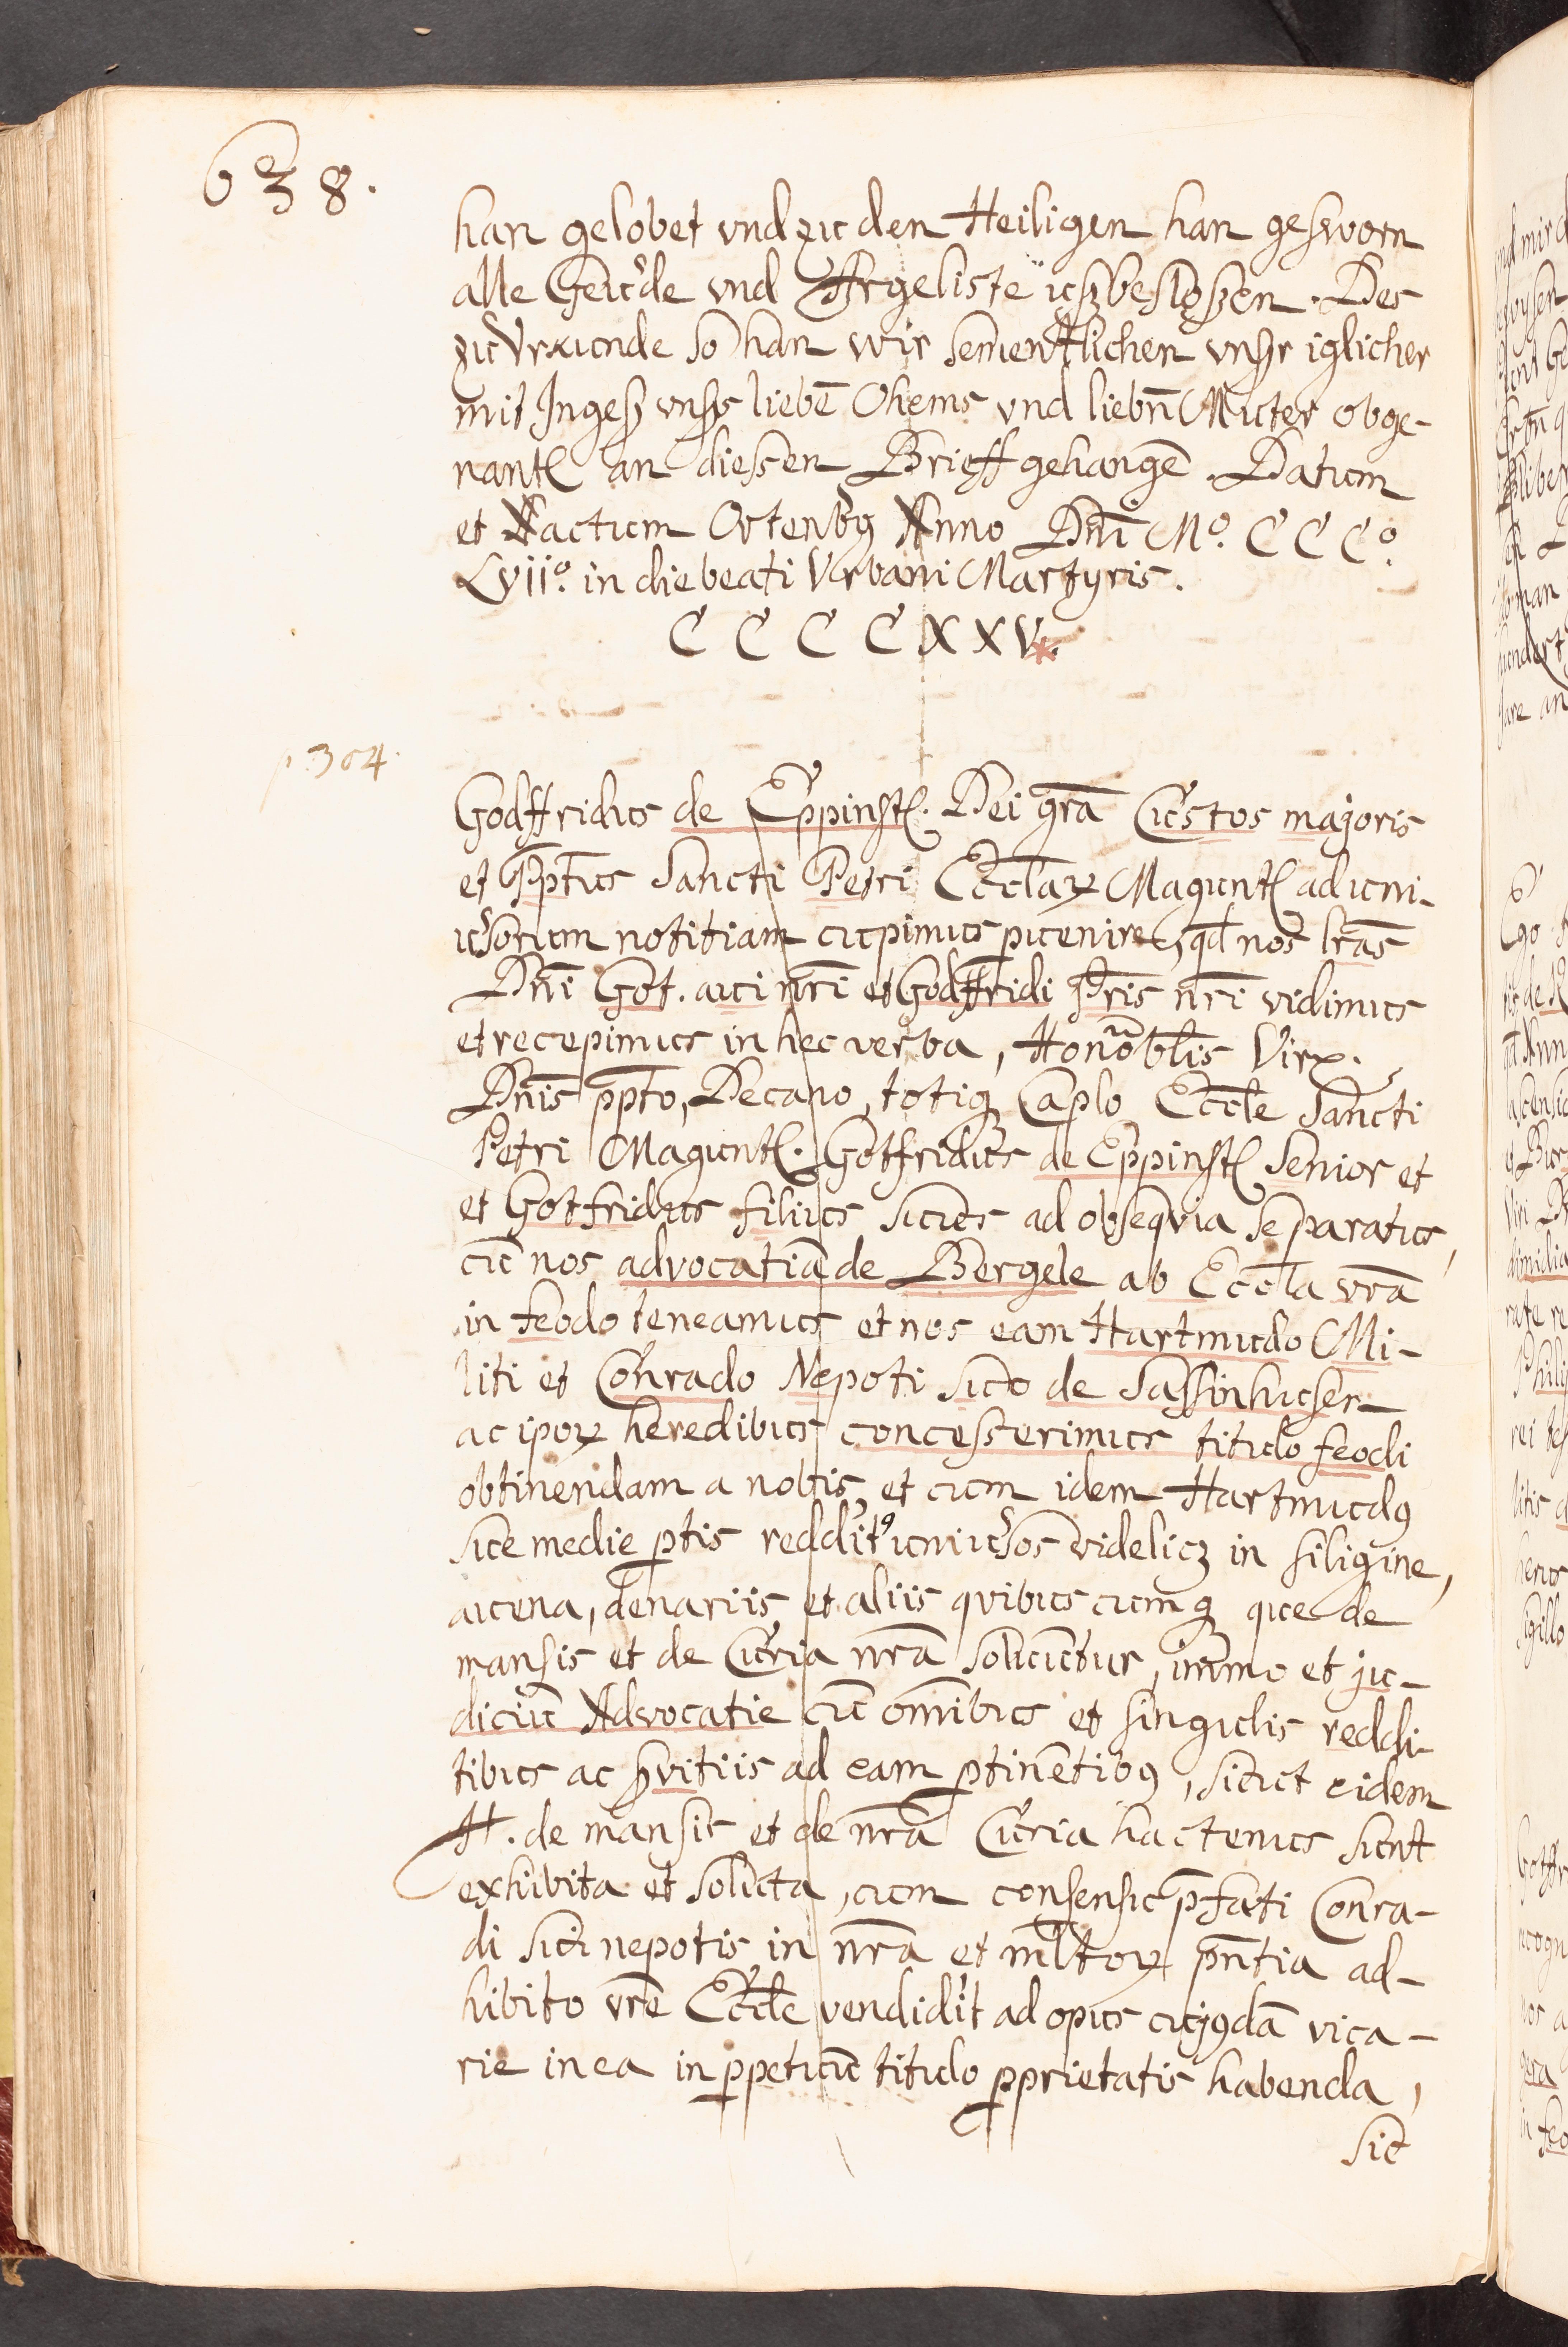 638.
han gelobet vnd zu den Heiligen han gesworn
alle Geu'de vnd Argeliste ußbesloßen. Des
zu Vrkunde so han wir sementlichen vnßr iglicher
mit Ingeß vnßs liebē Ohems vnd liebn̄ Muter obge-
nantꝭ an diessen Brieff gehangē. Datum
et Aactum Ortenbg Anno Dn̄i Mº. C C Cº.
Lviiº. in die beati Vrbani Martyris.
C C C C X X V.*
p. 304.
Godffridus de Eppinstꝭ. Dei gr̄a Custos majoris
et Pp̄tus Sancti Petri Eccl̄aꝝ Maguntꝭ ad uni-
u'sorum notitiam cupimus puenire, qd̄ nos lr̄as
Dn̄i Got. aui nr̄i et Godffridi Pr̄is nr̄i vidimus
et recepimus in hec verba, Honōbl̄is Virꝝ.
Dn̄is pp̄to, Decano, totiqꝫ Cap̄lo Eccl̄e Sancti
Petri Maguntꝭ. Gotfridus de Eppinstꝭ Senior et
et Gotfridus filius suus ad obseqvia se paratus,
cū nos advocatiā de Bergele ab Eccl̄a vr̄a
in feodo teneamus et nos eam Hartmudo Mi-
liti et Conrado Nepoti suo de Sassinhusen
ac ip̄oꝝ heredibus concesserimus titulo feodi
obtinendam a nobis, et cum idem Hartmudꝯ
sue medie ꝑtis redditꝯ uniu'sos videlicꝫ in siligine,
auena, denariis et aliis qvibuscumqꝫ que de
mansis et de Curia nr̄a soluūtur, im̄mo et ju-
diciū Advocatie cū om̄ibus et singulis reddi-
tibus ac s̄vitiis ad eam ꝑtinētibꝯ, sicut eidem
H. de mansis et de nr̄a Curia hactenus sunt
exhibita et soluta, cum consensu p̄fati Conra-
di sui nepotis in nr̄a et ml̄toꝝ pn̄tia ad-
hibito vr̄e Eccl̄e vendidit ad opus cujꝯdā vica-
rie in ea in ꝑpetuū titulo ꝓprietatis habenda,
sic